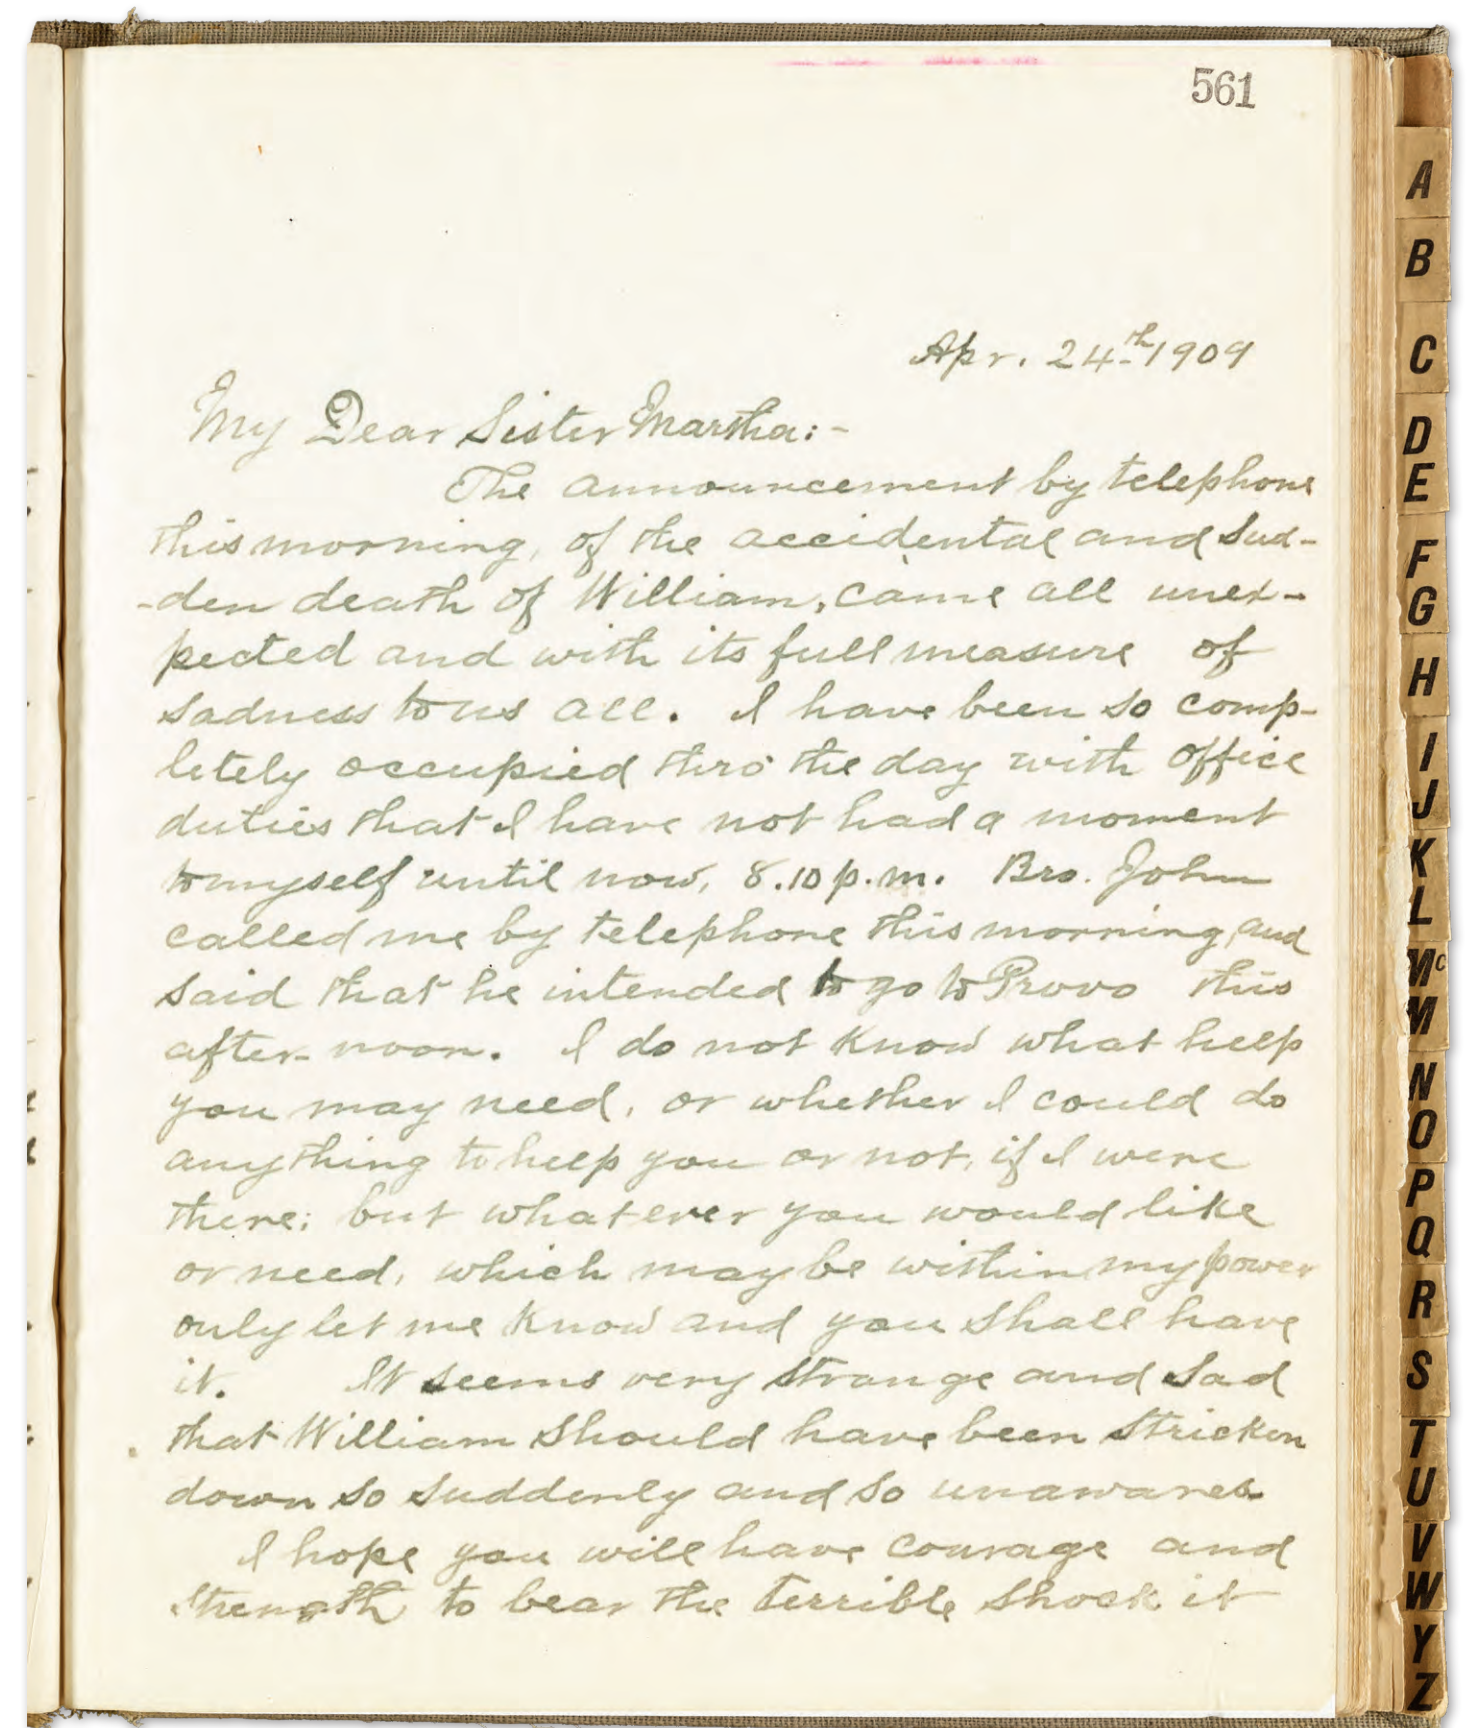 561
Apr. 24th 1909
My Dear Sister Martha:-
The announcement by telephone
this morning, of the accidental and sud-
-den death of William, came all unex-
pected and with its full measure of
sadness to us all. I have been so comp-
letely occupied thro' the day with office
duties that I have not had a moment
to myself until now, 8.10 p.m. Bro. John
called me by telephone this morning, and
said that he intended to go to Provo this
after-noon. I do not know what help
you may need, or whether I could do
anything to help you or not, if I were
there; but whatever you would like
or need, which may be within my power
only let me know and you shall have
it. It seems very strange and sad
that William should have been stricken
down so suddenly and so unawares.
I hope you will have courage and
strength to bear the terrible shock it
A
B
C
D
E
F
G
H
I
J
K
L
Mc
M
N
O
P
Q
R
S
T
U
V
W
Y
Z